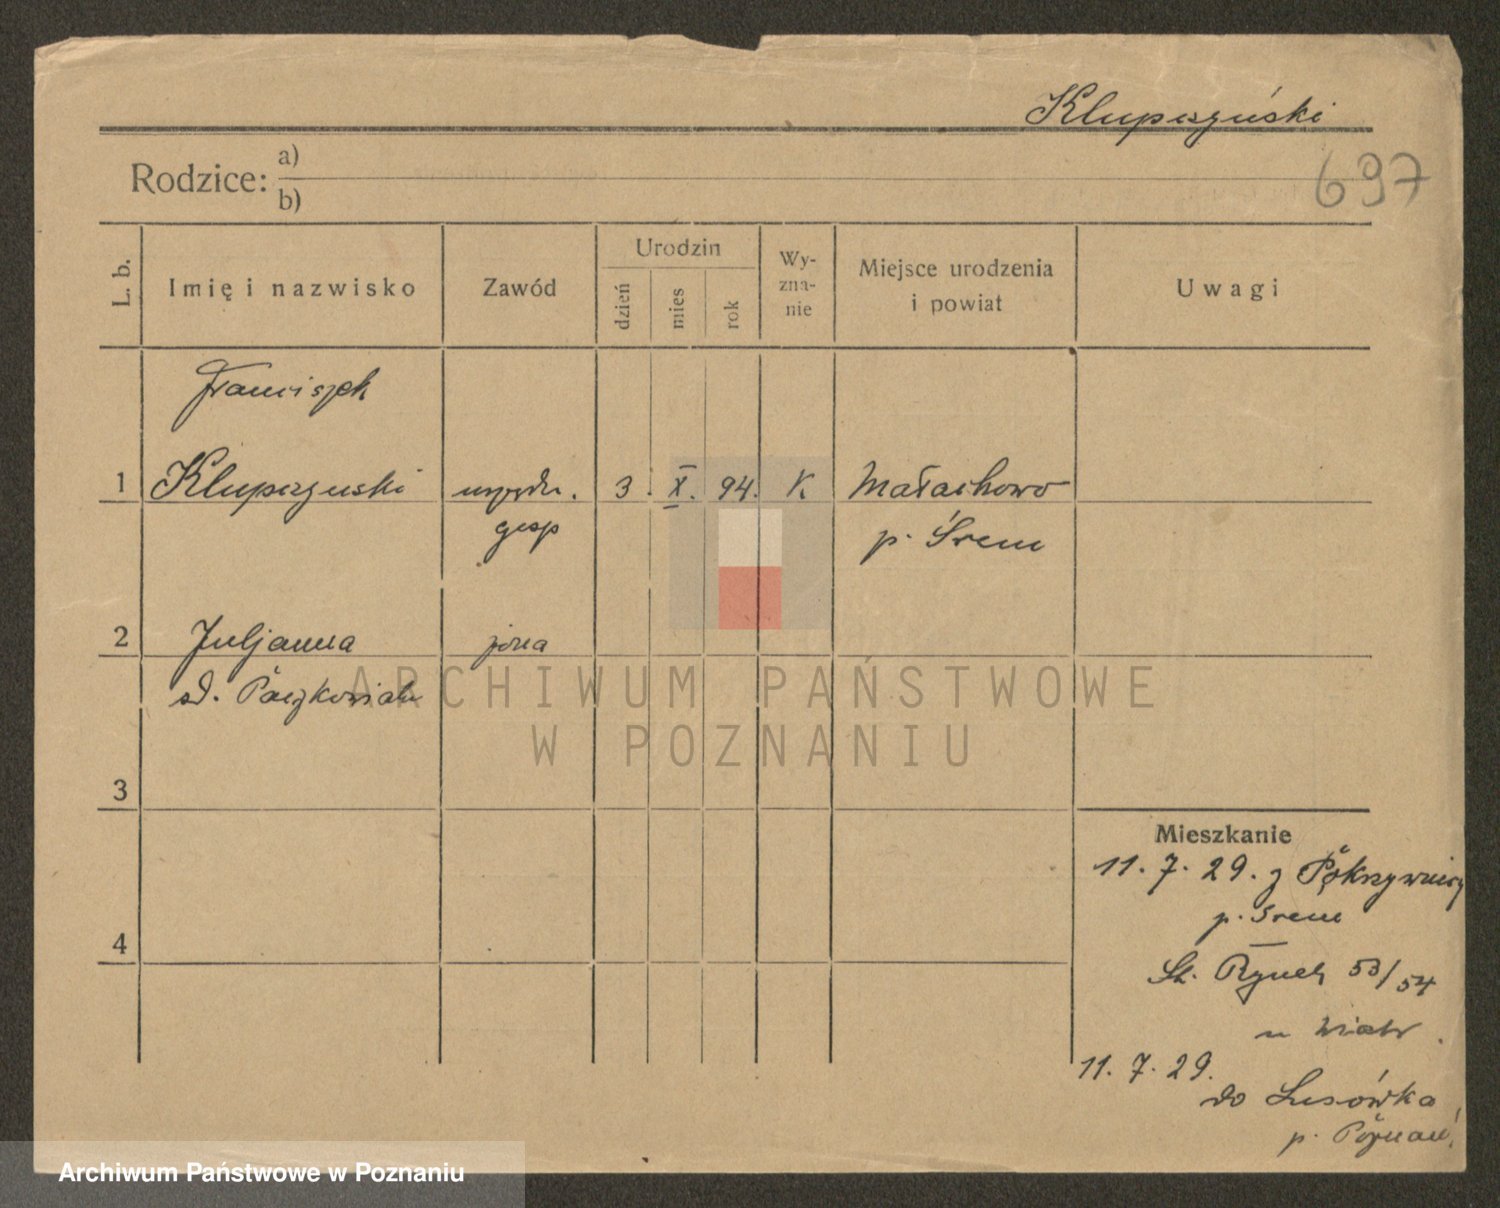 Klupszyński
697
Rodzice: a)
b)
L. b.
Imię i nazwisko
Zawód
Urodzin
dzień
mies
rok
Wy-
zna-
nie
Miejsce urodzenia
i powiat
Uwagi
Franciszek
1 Klupszynski urzędn. 3. X. 94. K Małachowo
gosp p. Śrem
2 Juljanna żona
zd. Paczkowiak
3
Mieszkanie
11. 7. 29. z Pokrzywnicy
p. Srem
4
St. Rynek 53/54
u Wiatr
11. 7. 29.
do Lusówka
p. Poznań
ARCHIWUM PAŃSTWOWE
W POZNANIU
Archiwum Państwowe w Poznaniu